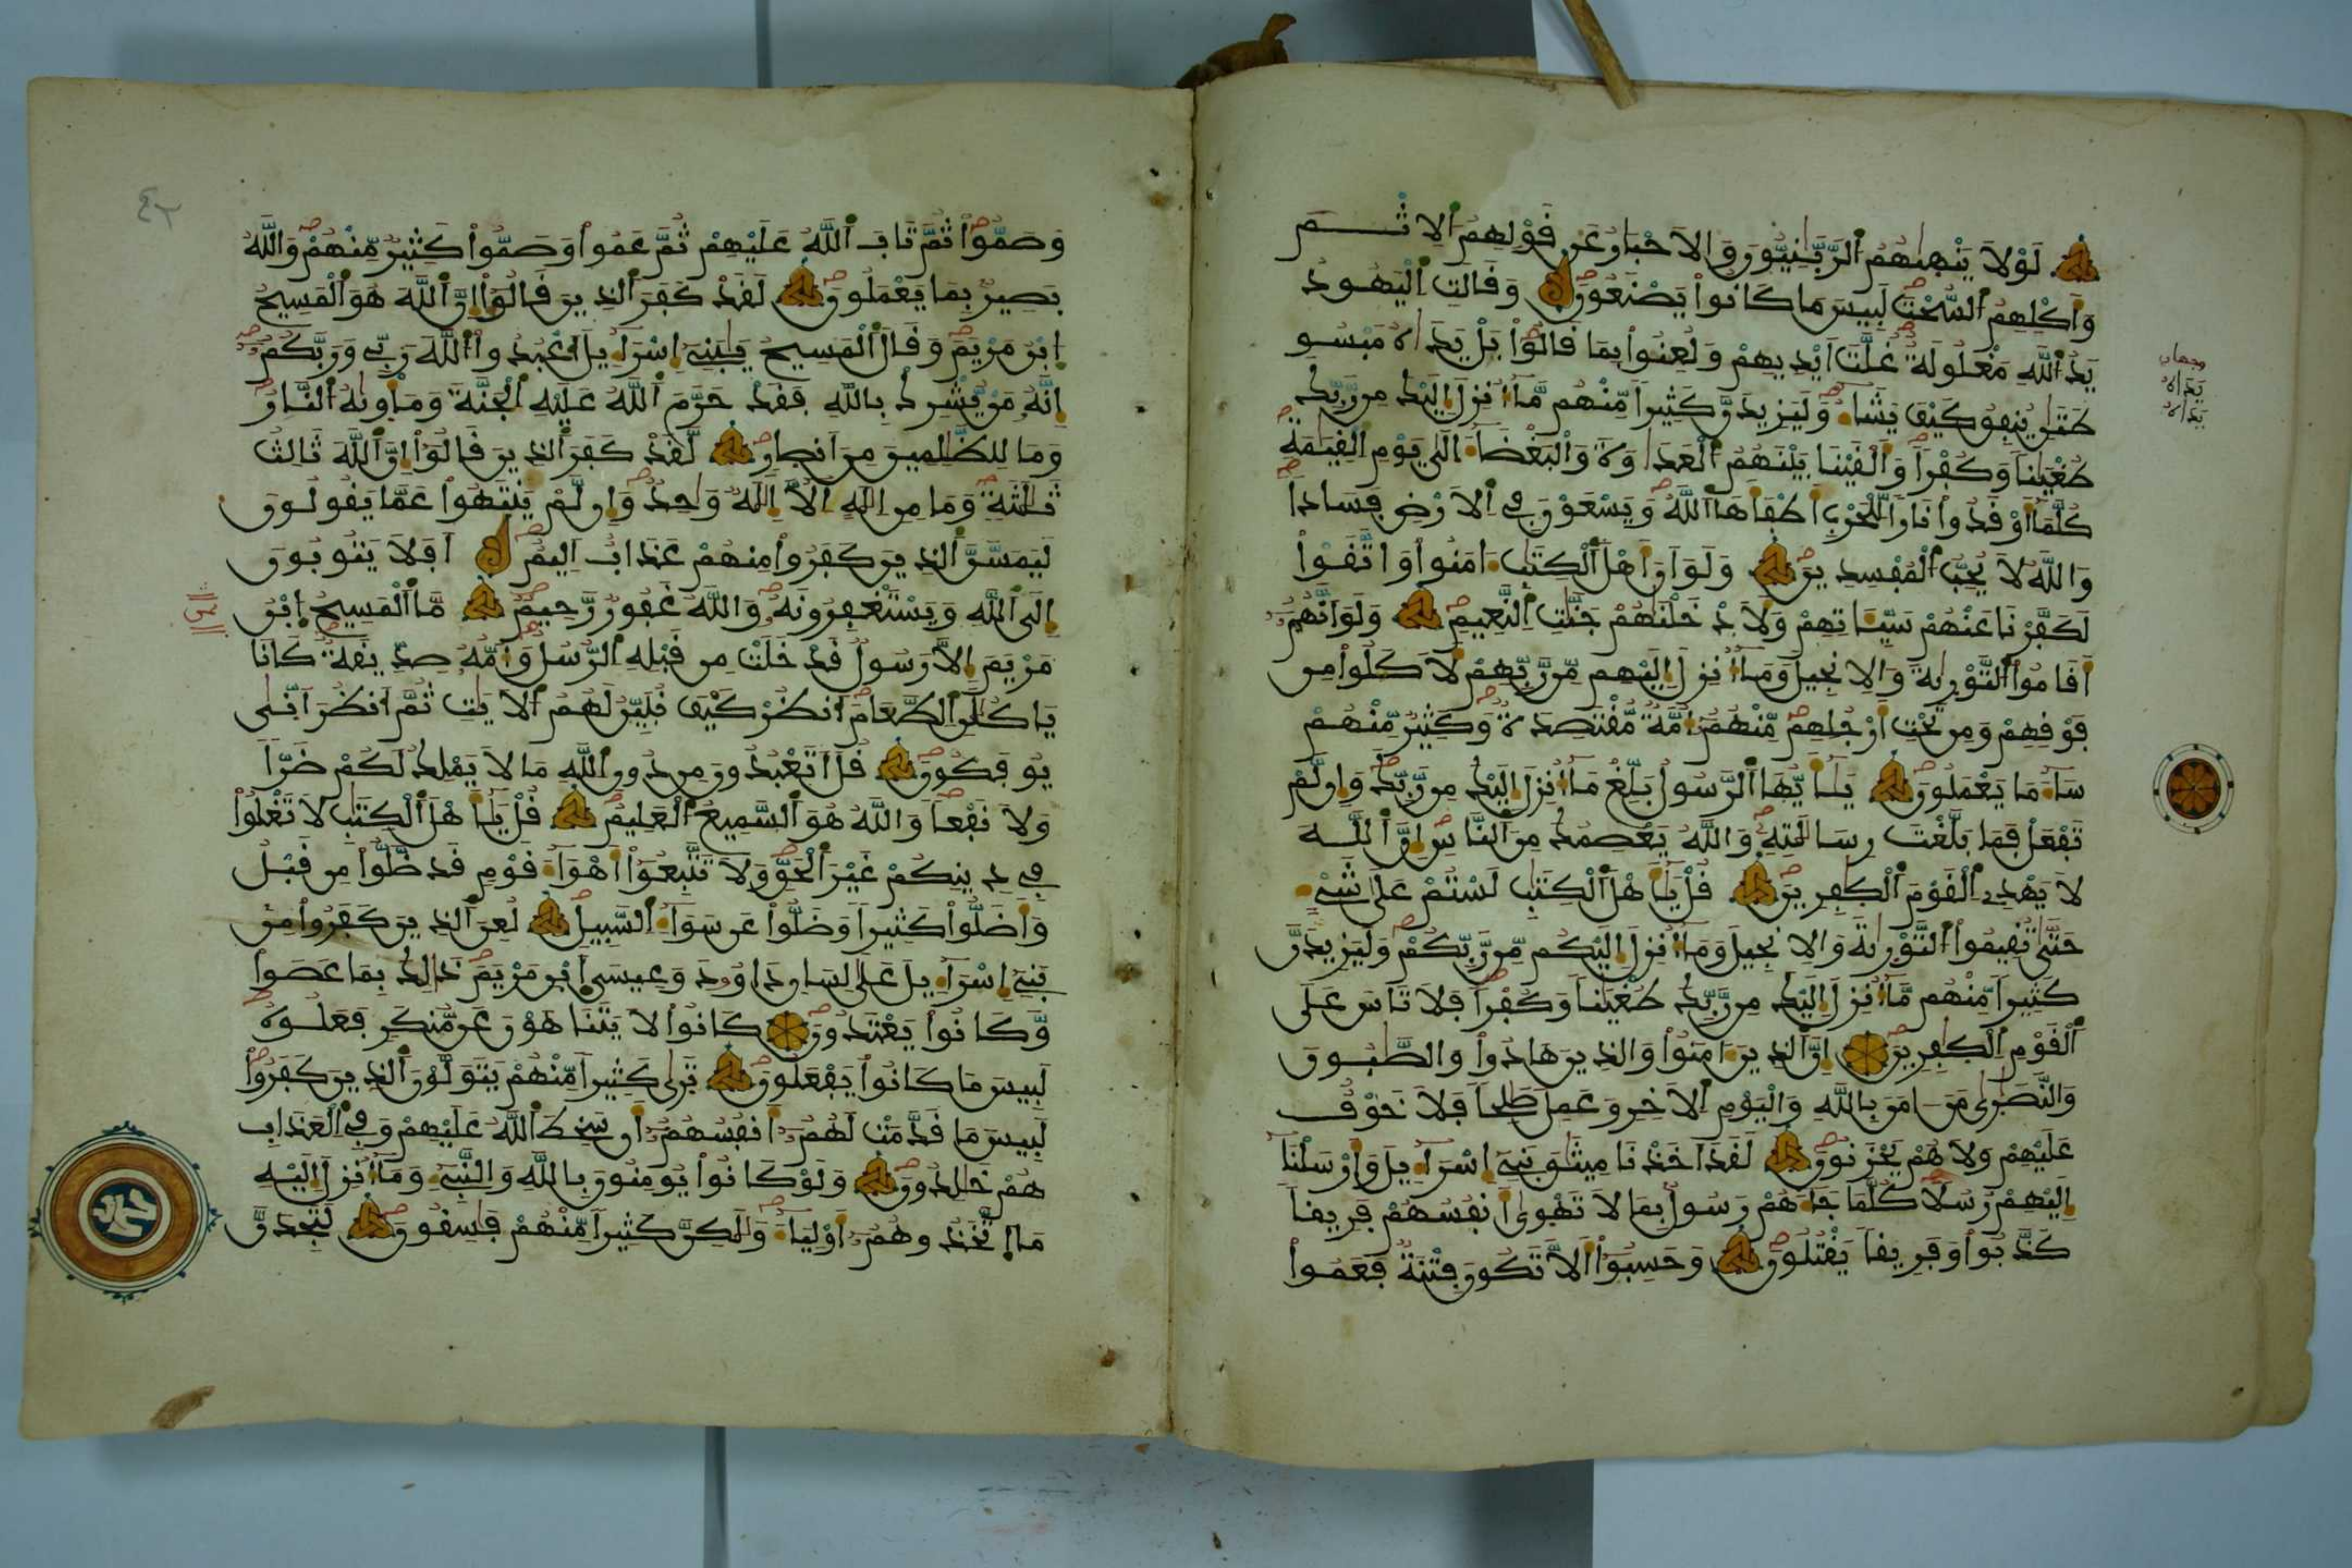 لَوْلَا يَنْهٰىهُمُ الرَّبَّٰنِيُّونَ وَالَاحْبَارُ عَن قَوْلِهِمُ الِاثْـــمَ
وَأَكْلِهِمُ السُّحْتَ لَبِيسَ مَا كَانُوا يَصْنَعُونَ وَقَالَتِ الْيَهُودُ
يَدُ اللَّهِ مَغْلُولَةٌ غُلَّتَ ايْدِيهِمْ وَلُعِنُوا بِمَا قَالُوا بَلْ يَدَاهُ مَبْسُو
طَتَٰنِ يُنفِقُ كَيْفَ يَشَاءُ وَلَيَزِيدَنَّ كَثِيراً مِّنْهُم مَّا أُنزِلَ إِلَيْكَ مِن رَّبِّكَ
طُغْيَٰناً وَكُفْراً وَأَلْقَيْنَا بَيْنَهُمُ الْعَدَاوَةَ وَالْبَغْضَاءَ إِلَىٰ يَوْمِ الْقِيَٰمَةِ
كُلَّمَا أَوْقَدُوا نَاراً لِّلْحَرْبِ أَطْفَأَهَا اللَّهُ وَيَسْعَوْنَ فِي الَارْضِ فَسَاداً
وَاللَّهُ لَا يُحِبُّ الْمُفْسِدِينَ وَلَوَ انَّ أَهْلَ الْكِتَٰبِ ءَامَنُوا وَاتَّقَوْا
لَكَفَّرْنَا عَنْهُمْ سَيِّـَٔاتِهِمْ وَلَأَدْخَلْنَٰهُمْ جَنَّٰتِ النَّعِيمِ وَلَوَ انَّهُمُ
أَقَامُوا التَّوْرَىٰةَ وَالِانجِيلَ وَمَا أُنزِلَ إِلَيْهِم مِّن رَّبِّهِمْ لَأَكَلُوا مِن
فَوْقِهِمْ وَمِن تَحْتِ أَرْجُلِهِم مِّنْهُمُ أُمَّةٌ مُّقْتَصِدَةٌ وَكَثِيرٌ مِّنْهُمْ
سَاءَ مَا يَعْمَلُونَ يَٰأَيُّهَا الرَّسُولُ بَلِّغْ مَا أُنزِلَ إِلَيْكَ مِن رَّبِّكَ وَإِن لَّمْ
تَفْعَلْ فَمَا بَلَّغْتَ رِسَالَٰتِهِ وَاللَّهُ يَعْصِمُكَ مِنَ النَّاسِ إِنَّ اللَّـهَ
لَا يَهْدِي الْقَوْمَ الْكَٰفِرِينَ قُلْ يَٰأَهْلَ الْكِتَٰبِ لَسْتُمْ عَلَىٰ شَيْءٍ
حَتَّىٰ تُقِيمُوا التَّوْرَىٰةَ وَالِانجِيلَ وَمَا أُنزِلَ إِلَيْكُم مِّن رَّبِّكُمْ وَلَيَزِيدَنَّ
كَثِيراً مِّنْهُم مَّا أُنزِلَ إِلَيْكَ مِن رَّبِّكَ طُغْيَٰناً وَكُفْراً فَلَا تَاسَ عَلَى
الْقَوْمِ الْكَٰفِرِينَ إِنَّ الَّذِينَ ءَامَنُوا وَالَّذِينَ هَادُوا وَالصَّٰبُونَ
وَالنَّصَٰرَىٰ مَنَ ـامَنَ بِاللَّهِ وَالْيَوْمِ الَاخِرِ وَعَمِلَ صَٰلِحاً فَلَا خَوْفٌ
عَلَيْهِمْ وَلَا هُمْ يَحْزَنُونَ لَقَدَ اخَذْنَا مِيثَٰقَ بَنِي إِسْرَاءِيلَ وَأَرْسَلْنَا
إِلَيْهِمْ رُسُلاً كُلَّمَا جَاءَهُمْ رَسُولٌ بِمَا لَا تَهْوَىٰ أَنفُسُهُمْ فَرِيقاً
كَذَّبُوا وَفَرِيقاً يَقْتُلُونَ وَحَسِبُوا أَلَّا تَكُونَ فِتْنَةٌ فَعَمُوا
وجهان
يَدَاهُ
يَدَاهُ
وَصَمُّوا ثُمَّ تَابَ اللَّهُ عَلَيْهِمْ ثُمَّ عَمُوا وَصَمُّوا كَثِيرٌ مِّنْهُمْ وَاللَّهُ
بَصِيرٌ بِمَا يَعْمَلُونَ لَقَدْ كَفَرَ الَّذِينَ قَالُوا إِنَّ اللَّهَ هُوَ الْمَسِيحُ
ابْنُ مَرْيَمَ وَقَالَ الْمَسِيحُ يَٰبَنِي إِسْرَاءِيلَ اعْبُدُوا اللَّهَ رَبِّي وَرَبَّكُمُ
إِنَّهُ مَن يُّشْرِكْ بِاللَّهِ فَقَدْ حَرَّمَ اللَّهُ عَلَيْهِ الْجَنَّةَ وَمَأْوَىٰهُ النَّارُ
وَمَا لِلظَّٰلِمِينَ مِنَ انصَارٍ لَّقَدْ كَفَرَ الَّذِينَ قَالُوا إِنَّ اللَّهَ ثَالِثُ
ثَلَٰثَةٍ وَمَا مِنِ الَٰهٍ إِلَّا إِلَٰهٌ وَاحِدٌ وَإِن لَّمْ يَنتَهُوا عَمَّا يَقُولُونَ
لَيَمَسَّنَّ الَّذِينَ كَفَرُوا مِنْهُمْ عَذَابٌ اَلِيمٌ أَفَلَا يَتُوبُونَ
إِلَى اللَّهِ وَيَسْتَغْفِرُونَهُ وَاللَّهُ غَفُورٌ رَّحِيمٌ مَّا الْمَسِيحُ ابْنُ
مَرْيَمَ إِلَّا رَسُولٌ قَدْ خَلَتْ مِن قَبْلِهِ الرُّسُلُ وَأُمُّهُ صِدِّيقَةٌ كَانَا
يَاكُلَٰنِ الطَّعَامَ انظُرْ كَيْفَ نُبَيِّنُ لَهُمُ الَايَٰتِ ثُمَّ انظُرَ انَّىٰ
يُوفَكُونَ قُلَ اتَعْبُدُونَ مِن دُونِ اللَّهِ مَا لَا يَمْلِكُ لَكُمْ ضَرّاً
وَلَا نَفْعاً وَاللَّهُ هُوَ السَّمِيعُ الْعَلِيمُ قُلْ يَٰأَهْلَ الْكِتَٰبِ لَا تَغْلُوا
فِي دِينِكُمْ غَيْرَ الْحَقِّ وَلَا تَتَّبِعُوا أَهْوَاءَ قَوْمٍ قَد ضَّلُّوا مِن قَبْلُ
وَأَضَلُّوا كَثِيراً وَضَلُّوا عَن سَوَاءِ السَّبِيلِ لُعِنَ الَّذِينَ كَفَرُوا مِن
بَنِي إِسْرَاءِيلَ عَلَىٰ لِسَانِ دَاوُدَ وَعِيسَى ابْنِ مَرْيَمَ ذَٰلِكَ بِمَا عَصَوا
وَّكَانُوا يَعْتَدُونَ كَانُوا لَا يَتَنَاهَوْنَ عَن مُّنكَرٍ فَعَلُوهُ
لَبِيسَ مَا كَانُوا يَفْعَلُونَ تَرَىٰ كَثِيراً مِّنْهُمْ يَتَوَلَّوْنَ الَّذِينَ كَفَرُوا
لَبِيسَ مَا قَدَّمَتْ لَهُمُ أَنفُسُهُمُ أَن سَخِطَ اللَّهُ عَلَيْهِمْ وَفِي الْعَذَابِ
هُمْ خَٰلِدُونَ وَلَوْ كَانُوا يُومِنُونَ بِاللَّهِ وَالنَّبِيءِ وَمَا أُنزِلَ إِلَيْهِ
مَا اتَّخَذُوهُمُ أَوْلِيَاءَ وَلَٰكِنَّ كَثِيراً مِّنْهُمْ فَٰسِقُونَ لَتَجِدَنَّ